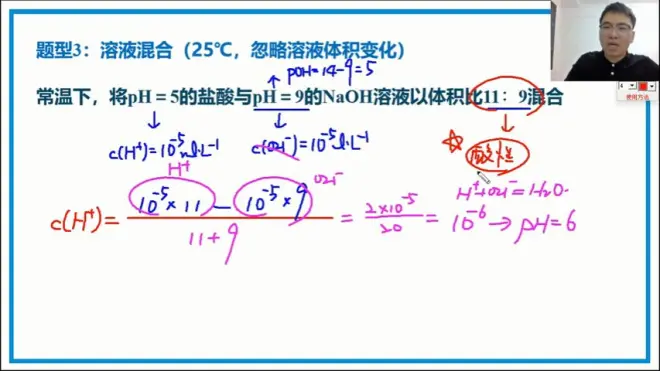 题型3：溶液混合（25℃，忽略溶液体积变化）
pOH=14-9=5
常温下，将pH=5的盐酸与pH=9的NaOH溶液以体积比11：9混合
c(H⁺)=10⁻⁵mol·L⁻¹ c(OH⁻)=10⁻⁵mol·L⁻¹
酸过
H⁺ OH⁻ H⁺+OH⁻=H₂O
c(H⁺)= 10⁻⁵×11 - 10⁻⁵×9 / 11+9 = 2×10⁻⁵ / 20 = 10⁻⁶ → pH=6
使用方法